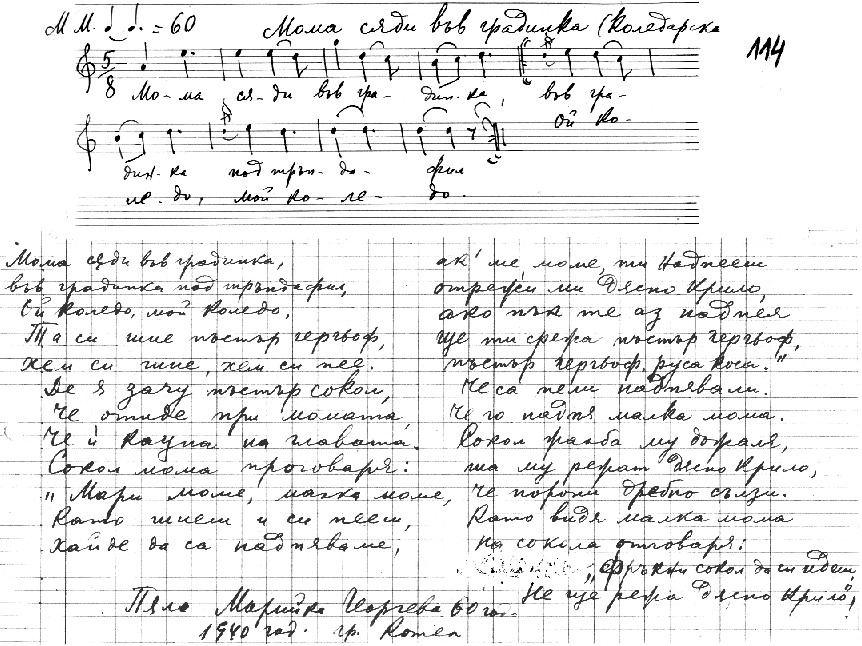 М.М. ♩ ♩. = 60 Мома сяди във градинка (коледарска
114
5
8
Мо- ма ся- ди във гра- дин-ка, във гра-
Ой ко-
дин-ка под трън- да- фил
ле- до, мой ко- ле- до.
Мома сяди във градинка,
във градинка под тръндафил,
Ой коледо, мой коледо,
Та си шие пъстър гергьоф,
хем си шие, хем си пее.
Де я зачу пъстър сокол,
Че отиде при момата,
Че ѝ кацна на главата.
Сокол мома проговаря:
„Мари моме, малка моме,
Като шиеш и си пееш,
Хайде да са надпяваме,
ак' ме, моме, ти надпееш
отрежи ми дясно крило,
ако пък те аз надпея
ще ти срежа пъстър гергьоф,
пъстър гергьоф, руса коса."
Че са пели надпявали.
Че го надпя малка мома.
Сокол жалба му дожаля,
та му режат дясно крило,
Че порони дребно сълзи.
Като видя малка мома
На сокола отговаря:
„Фръкни сокол да си идеш,
Не ще режа дясно крило",
Пяла Марийка Георгева 60 год.
1940 год. гр. Котел